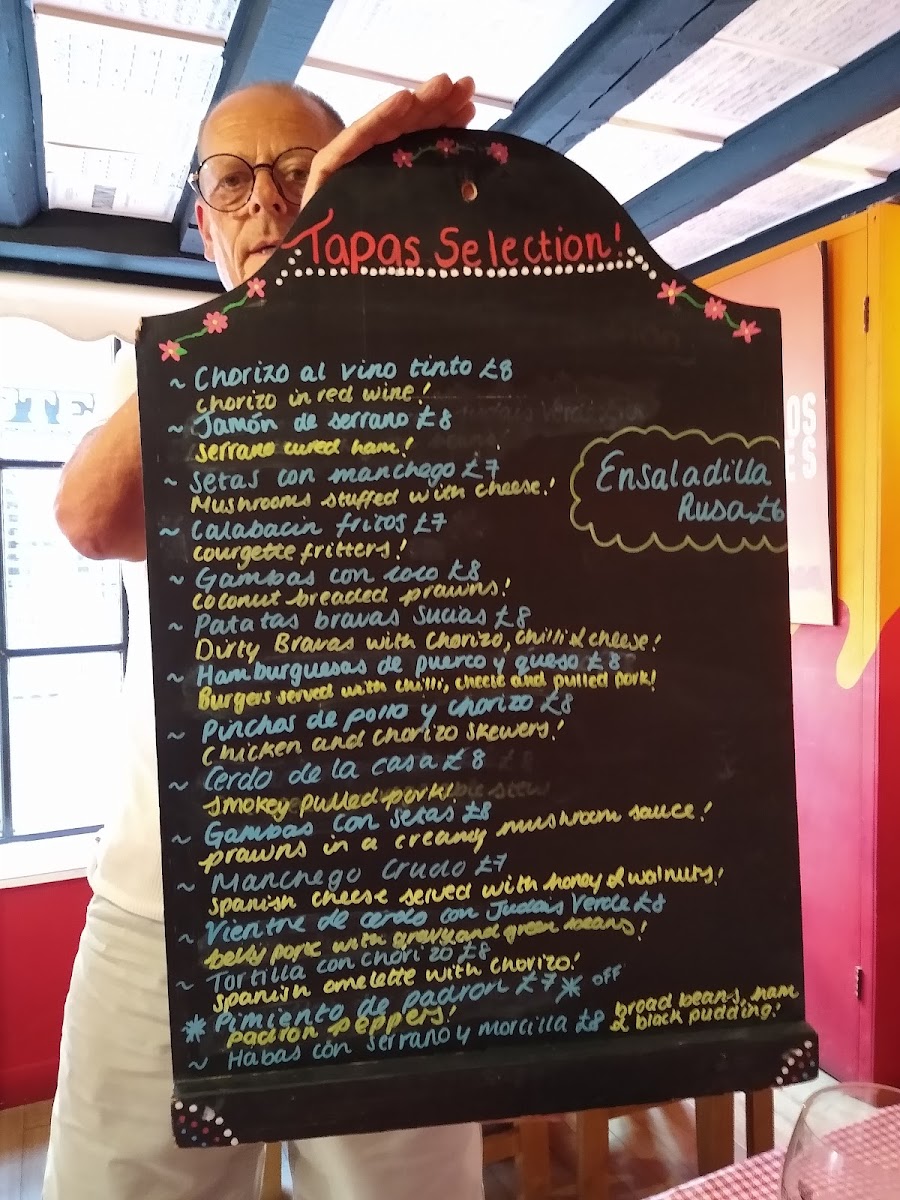 Tapas Selection!
~ Chorizo al vino tinto £8
chorizo in red wine!
~ Jamón de serrano £8
serrano cured ham!
~ Setas con manchego £7
Mushrooms stuffed with cheese!
~ Calabacin fritos £7
courgette fritters!
~ Gambas con coco £8
coconut breaded prawns!
~ Patatas bravas sucias £8
Dirty Bravas with chorizo, chilli & cheese!
~ Hamburguesas de puerco y queso £8
Burgers served with chilli, cheese and pulled pork!
~ Pinchos de pollo y chorizo £8
chicken and chorizo skewers!
~ Cerdo de la casa £8
smokey pulled pork!
~ Gambas con setas £8
prawns in a creamy mushroom sauce!
~ Manchego crudo £7
spanish cheese served with honey & walnuts!
~ Vientre de cerdo con Judais Verde £8
belly pork with gravy and green beans!
~ Tortilla con chorizo £8
spanish omelette with chorizo!
* Pimiento de padron £7 * OFF
padron peppers!
~ Habas con serrano y morcilla £8
broad beans, ham
& black pudding!
Ensaladilla
Rusa £6
OS
ES